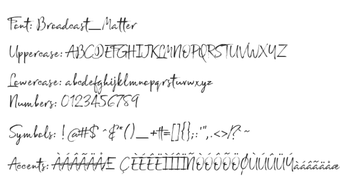 Font: Broadcast_Matter
Uppercase: ABCDEFGHIJKLMNOPQRSTUVWXYZ
Lowercase: abcdefghijklmnopqrstuvwxyz
Numbers: 0123456789
Symbols: !@#$%^&*()_-+=[]{};:'",.<>/?~
Accents: ÀÁÂÃÄÅÆ ÇÈÉÊËÌÍÎÏÑÒÓÔÕÖØÙÚÛÜÝàáâãäåæ